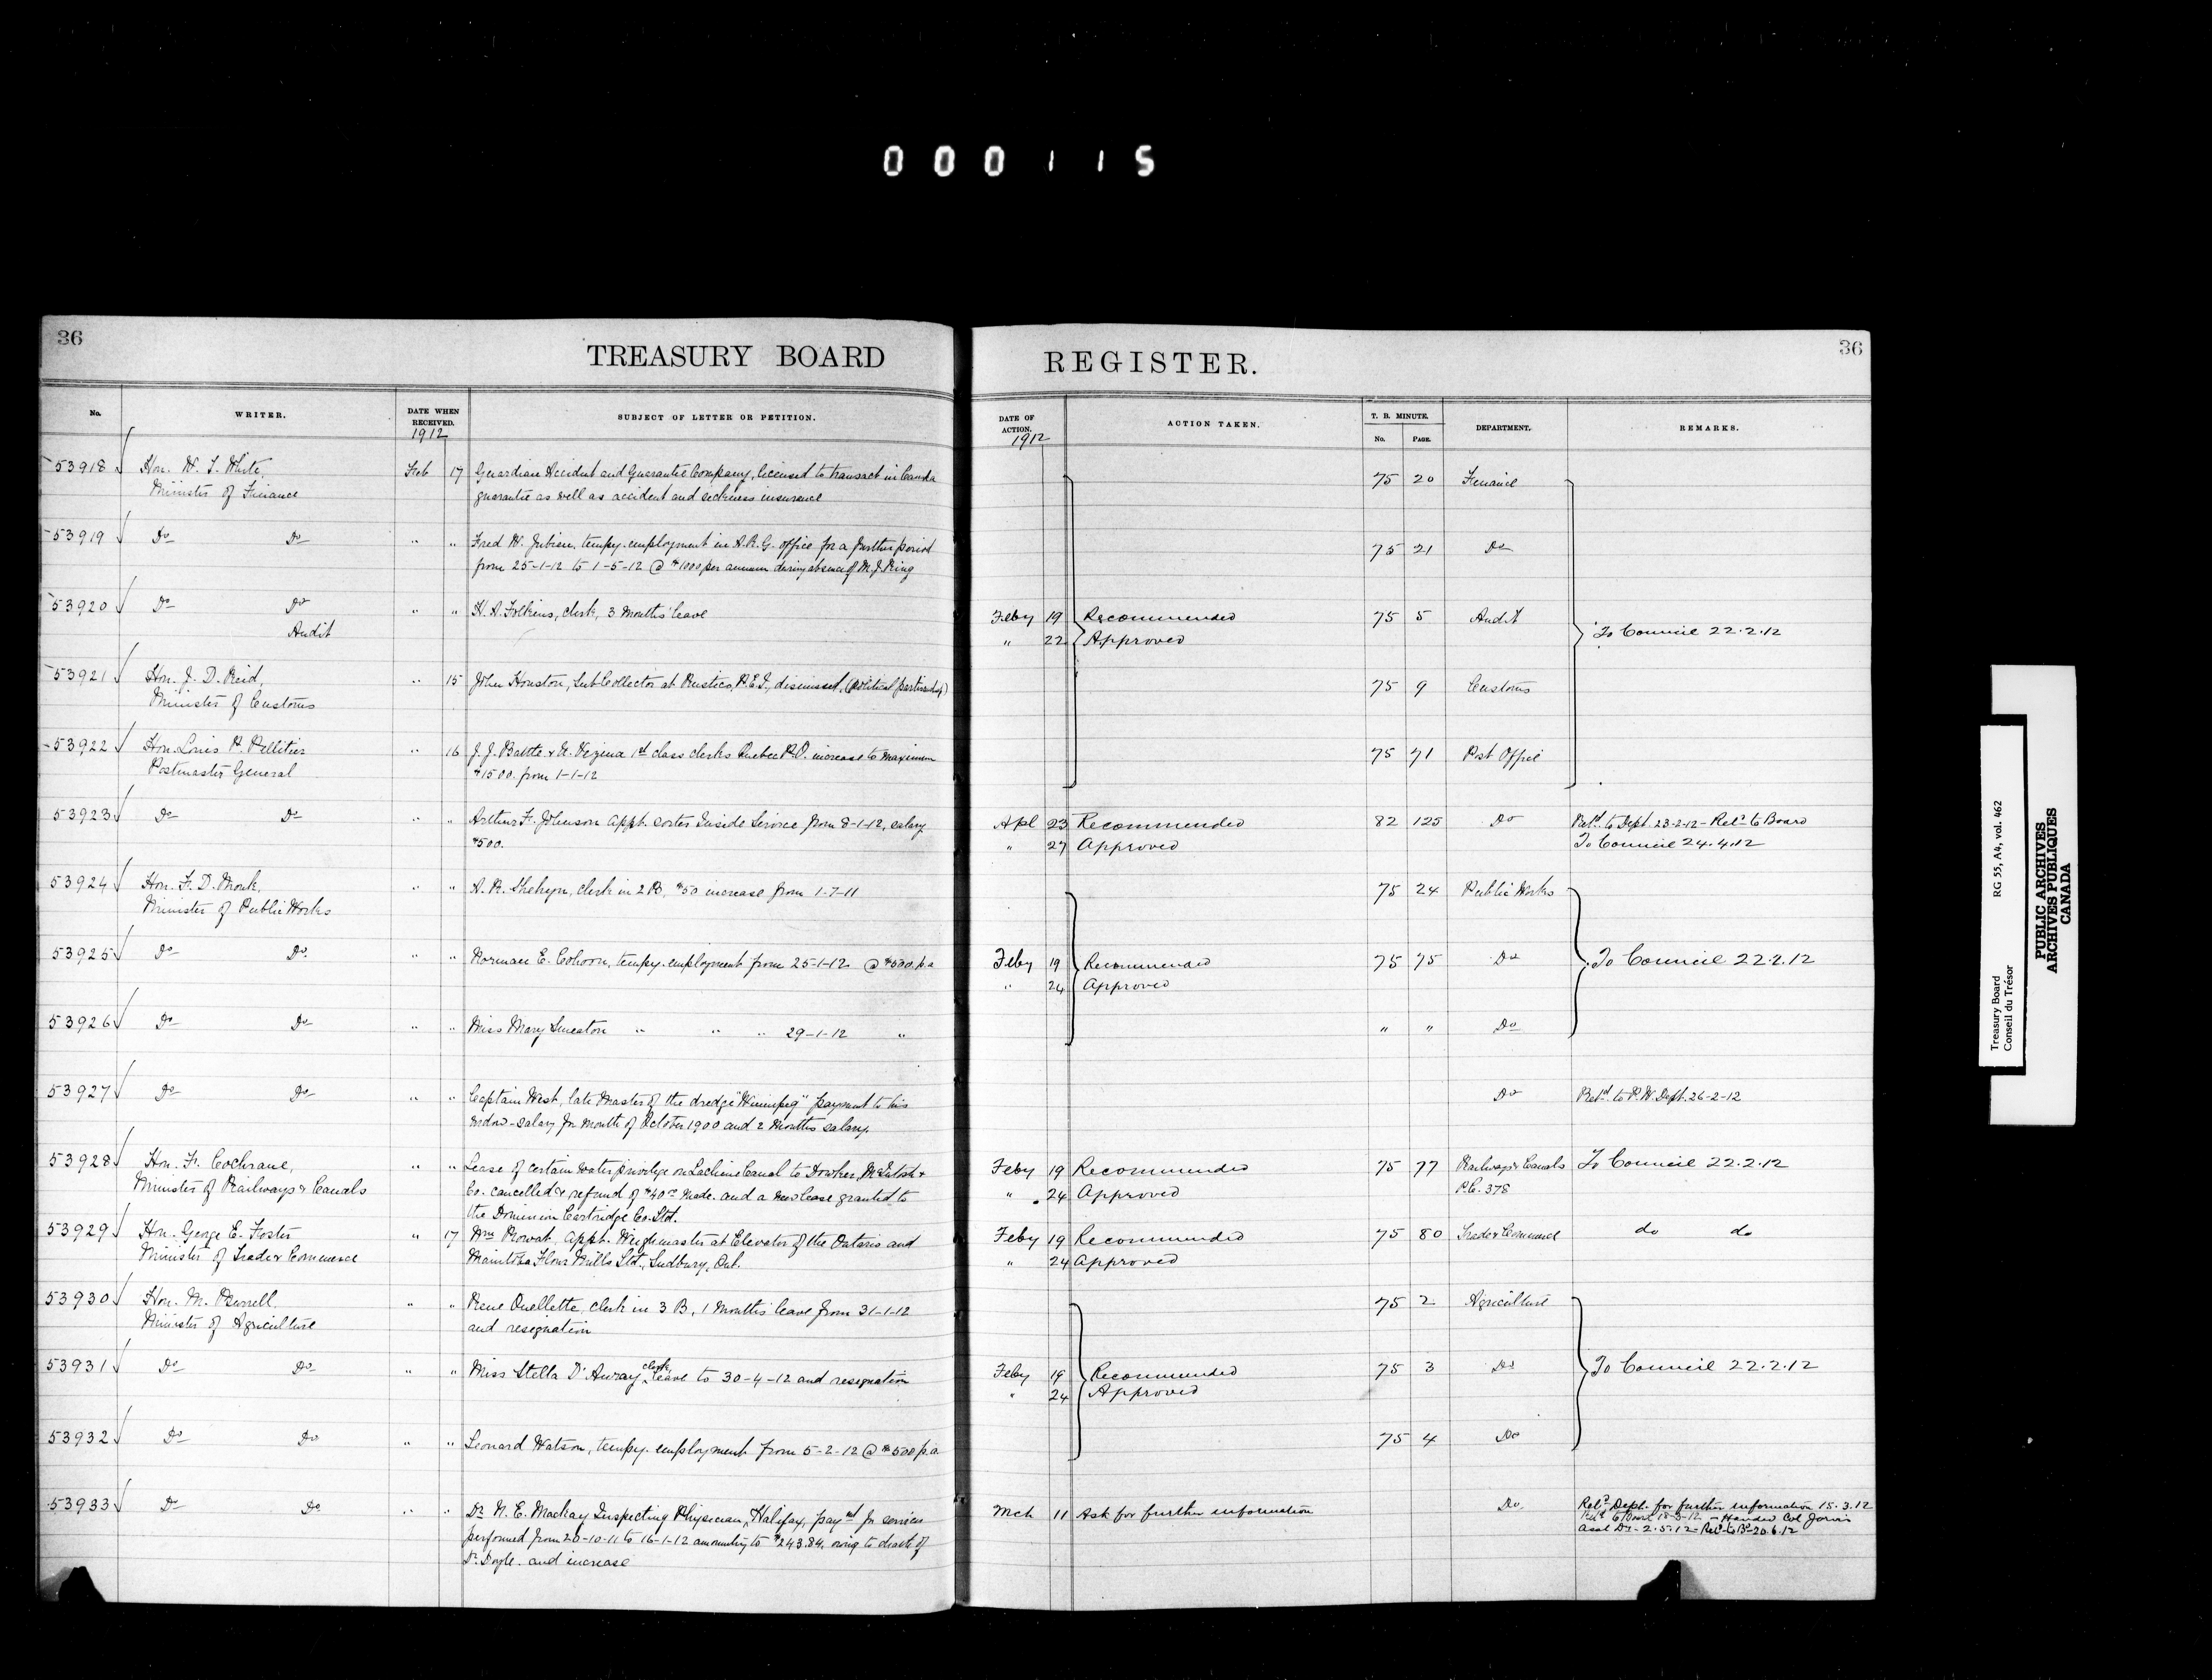 000115
36
TREASURY BOARD
REGISTER.
36
No.
WRITER.
DATE WHEN RECEIVED.
1912
SUBJECT OF LETTER OR PETITION.
DATE OF ACTION.
1912
ACTION TAKEN.
T. B. MINUTE.
No.
PAGE.
DEPARTMENT.
REMARKS.
53918 Hon. W. T. White, Feb 17 Guardian Accident and Guarantee Company, licensed to transact in Canada 75 20 Finance
Minister of Finance guarantee as well as accident and sickness insurance
53919 Do Do " " Fred W. tempy. employment in A.R.G. office for a further period 75 21 Do
from 25-1-12 to 1-5-12 @ $1000 per annum during absence of M. J. King
53920 Do Do " " H. A. Folkins, clerk, 3 months' leave Feby 19 Recommended 75 5 Audit
Audit " 22 Approved To Council 22.2.12
53921 Hon. J. D. Reid, " 15 John Houston, Sub Collector at Rustico, P.E.I., dismissed, (political partisanship) 75 9 Customs
Minister of Customs
53922 Hon. Louis P. Pelletier " 16 J. J. Battle & U. Vezina 1st class clerks Quebec P.O. increase to maximum 75 71 Post Office
Postmaster General $1500. from 1-1-12
53923 Do Do " " Arthur F. Johnson appt. sorter Inside Service from 8-1-12, salary Apl 23 Recommended 82 125 Do Retd to Dept. 23-2-12 - Retd to Board
$500. " 27 Approved To Council 24.4.12
53924 Hon. F. D. Monk, " " A. R. Shehyn, clerk in 2 B, $50 increase from 1-7-11 75 24 Public Works
Minister of Public Works
53925 Do Do " " Norman E. Cohoon, tempy. employment from 25-1-12 @ $500. p.a Feby 19 Recommended 75 75 Do To Council 22.2.12
" 24 Approved
53926 Do Do " " Miss Mary Smeaton " " " 29-1-12 " " " Do
53927 Do Do " " Captain West, late Master of the dredge "Winnipeg" payment to his Do Retd to P. W. Dept. 26-2-12
widow - salary for month of October 1900 and 2 months salary.
53928 Hon. F. Cochrane, " " Lease of certain water privilege on Lachine Canal to McIntosh & Feby 19 Recommended 75 77 Railways & Canals To Council 22.2.12
Minister of Railways & Canals Co. cancelled & refund of $40.00 made. and a new lease granted to " 24 Approved P.C. 378
the Dominion Cartridge Co. Ltd.
53929 Hon. George E. Foster " 17 Wm Mowat, appt. Weighmaster at Elevator of the Ontario and Feby 19 Recommended 75 80 Trade & Commerce do do
Minister of Trade & Commerce Manitoba Flour Mills Ltd., Sudbury, Ont. " 24 Approved
53930 Hon. M. Burrell, " " Rene Ouellette, clerk in 3 B, 1 months leave from 31-1-12 75 2 Agriculture
Minister of Agriculture and resignation
53931 Do Do " " Miss Stella D'Auray, clerk, leave to 30-4-12 and resignation Feby 19 Recommended 75 3 Do To Council 22.2.12
" 24 Approved
53932 Do Do " " Leonard Watson, tempy. employment from 5-2-12 @ $500 p.a 75 4 Do
53933 Do Do " " Dr. N. E. Mackay Inspecting Physician, Halifax, paymt for services Mch 11 Ask for further information Do Retd Dept. for further information 15.3.12
performed from 20-10-11 to 16-1-12 amounting to $243.84, owing to death of Retd to Board 18-3-12 - Handed Col Jarvis
Dr. Doyle. and increase Asst Dr - 2.5.12 - Retd to Bd - 20.6.12
Treasury Board RG 55, A4, vol. 462
Conseil du Trésor
PUBLIC ARCHIVES
ARCHIVES PUBLIQUES
CANADA